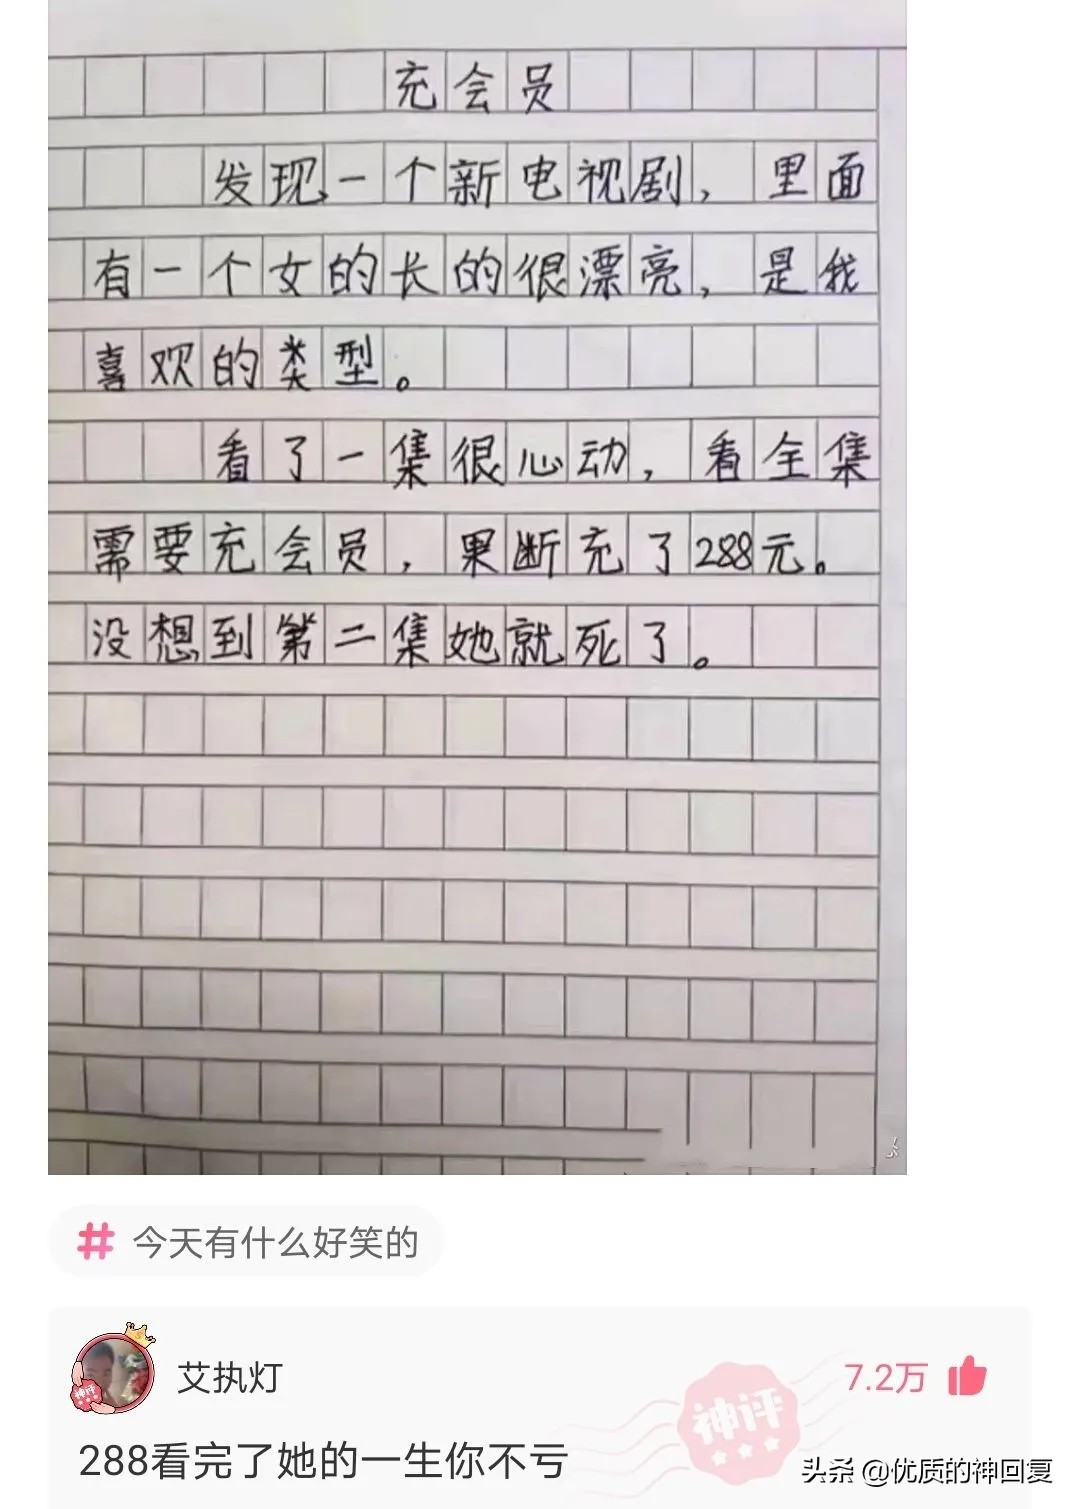 充会员
发现一个新电视剧，里面
有一个女的长的很漂亮，是我
喜欢的类型。
看了一集很心动，看全集
需要充会员，果断充了288元。
没想到第二集她就死了。
# 今天有什么好笑的
艾执灯
7.2万
神评
神评
288看完了她的一生你不亏
头条 @优质的神回复